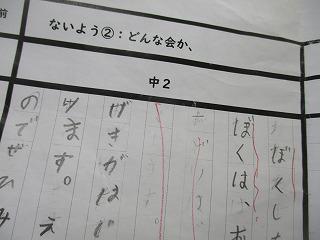 前
ないよう②:どんな会か、
中2
ぼくし
ぼくは、お
げきがはい
ります。え
のでぜひみ